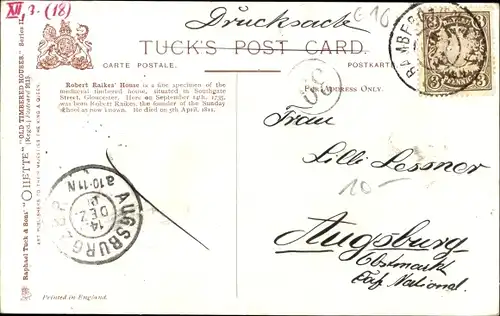 XII 3. (18)
Drucksache
G 10
TUCK'S POST CARD.
CARTE POSTALE.
POSTKARTE
For Address Only.
Robert Raikes' House is a fine specimen of the
mediæval timbered house, situated in Southgate
Street, Gloucester. Here on September 14th, 1735,
was born Robert Raikes, the founder of the Sunday
school as now known. He died on 5th April, 1811.
BAMBERG
3
3
PFENNIG
30
Frau
Lilli Lessner
10-
Augsburg
Ostmarkt
Caf. National.
AUGSBURG
a.10-11 N
14
DEZ
Raphael Tuck & Sons' "OILETTE" "OLD TIMBERED HOUSES." Series II.
ART PUBLISHERS TO THEIR MAJESTIES THE KING & QUEEN.
Printed in England.